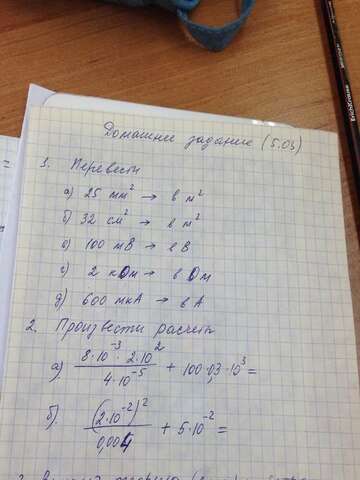 Домашнее задание (5.03)
1. Перевести
а) 25 мм² → в м²
б) 32 см² → в м²
в) 100 мВ → в В
г) 2 кОм → в Ом
д) 600 мкА → в А
2. Произвести расчеты
а) (8·10⁻³ · 2·10²) / (4·10⁻⁵) + 100·0,3·10³ =
б) (2·10⁻²)² / 0,004 + 5·10⁻² =